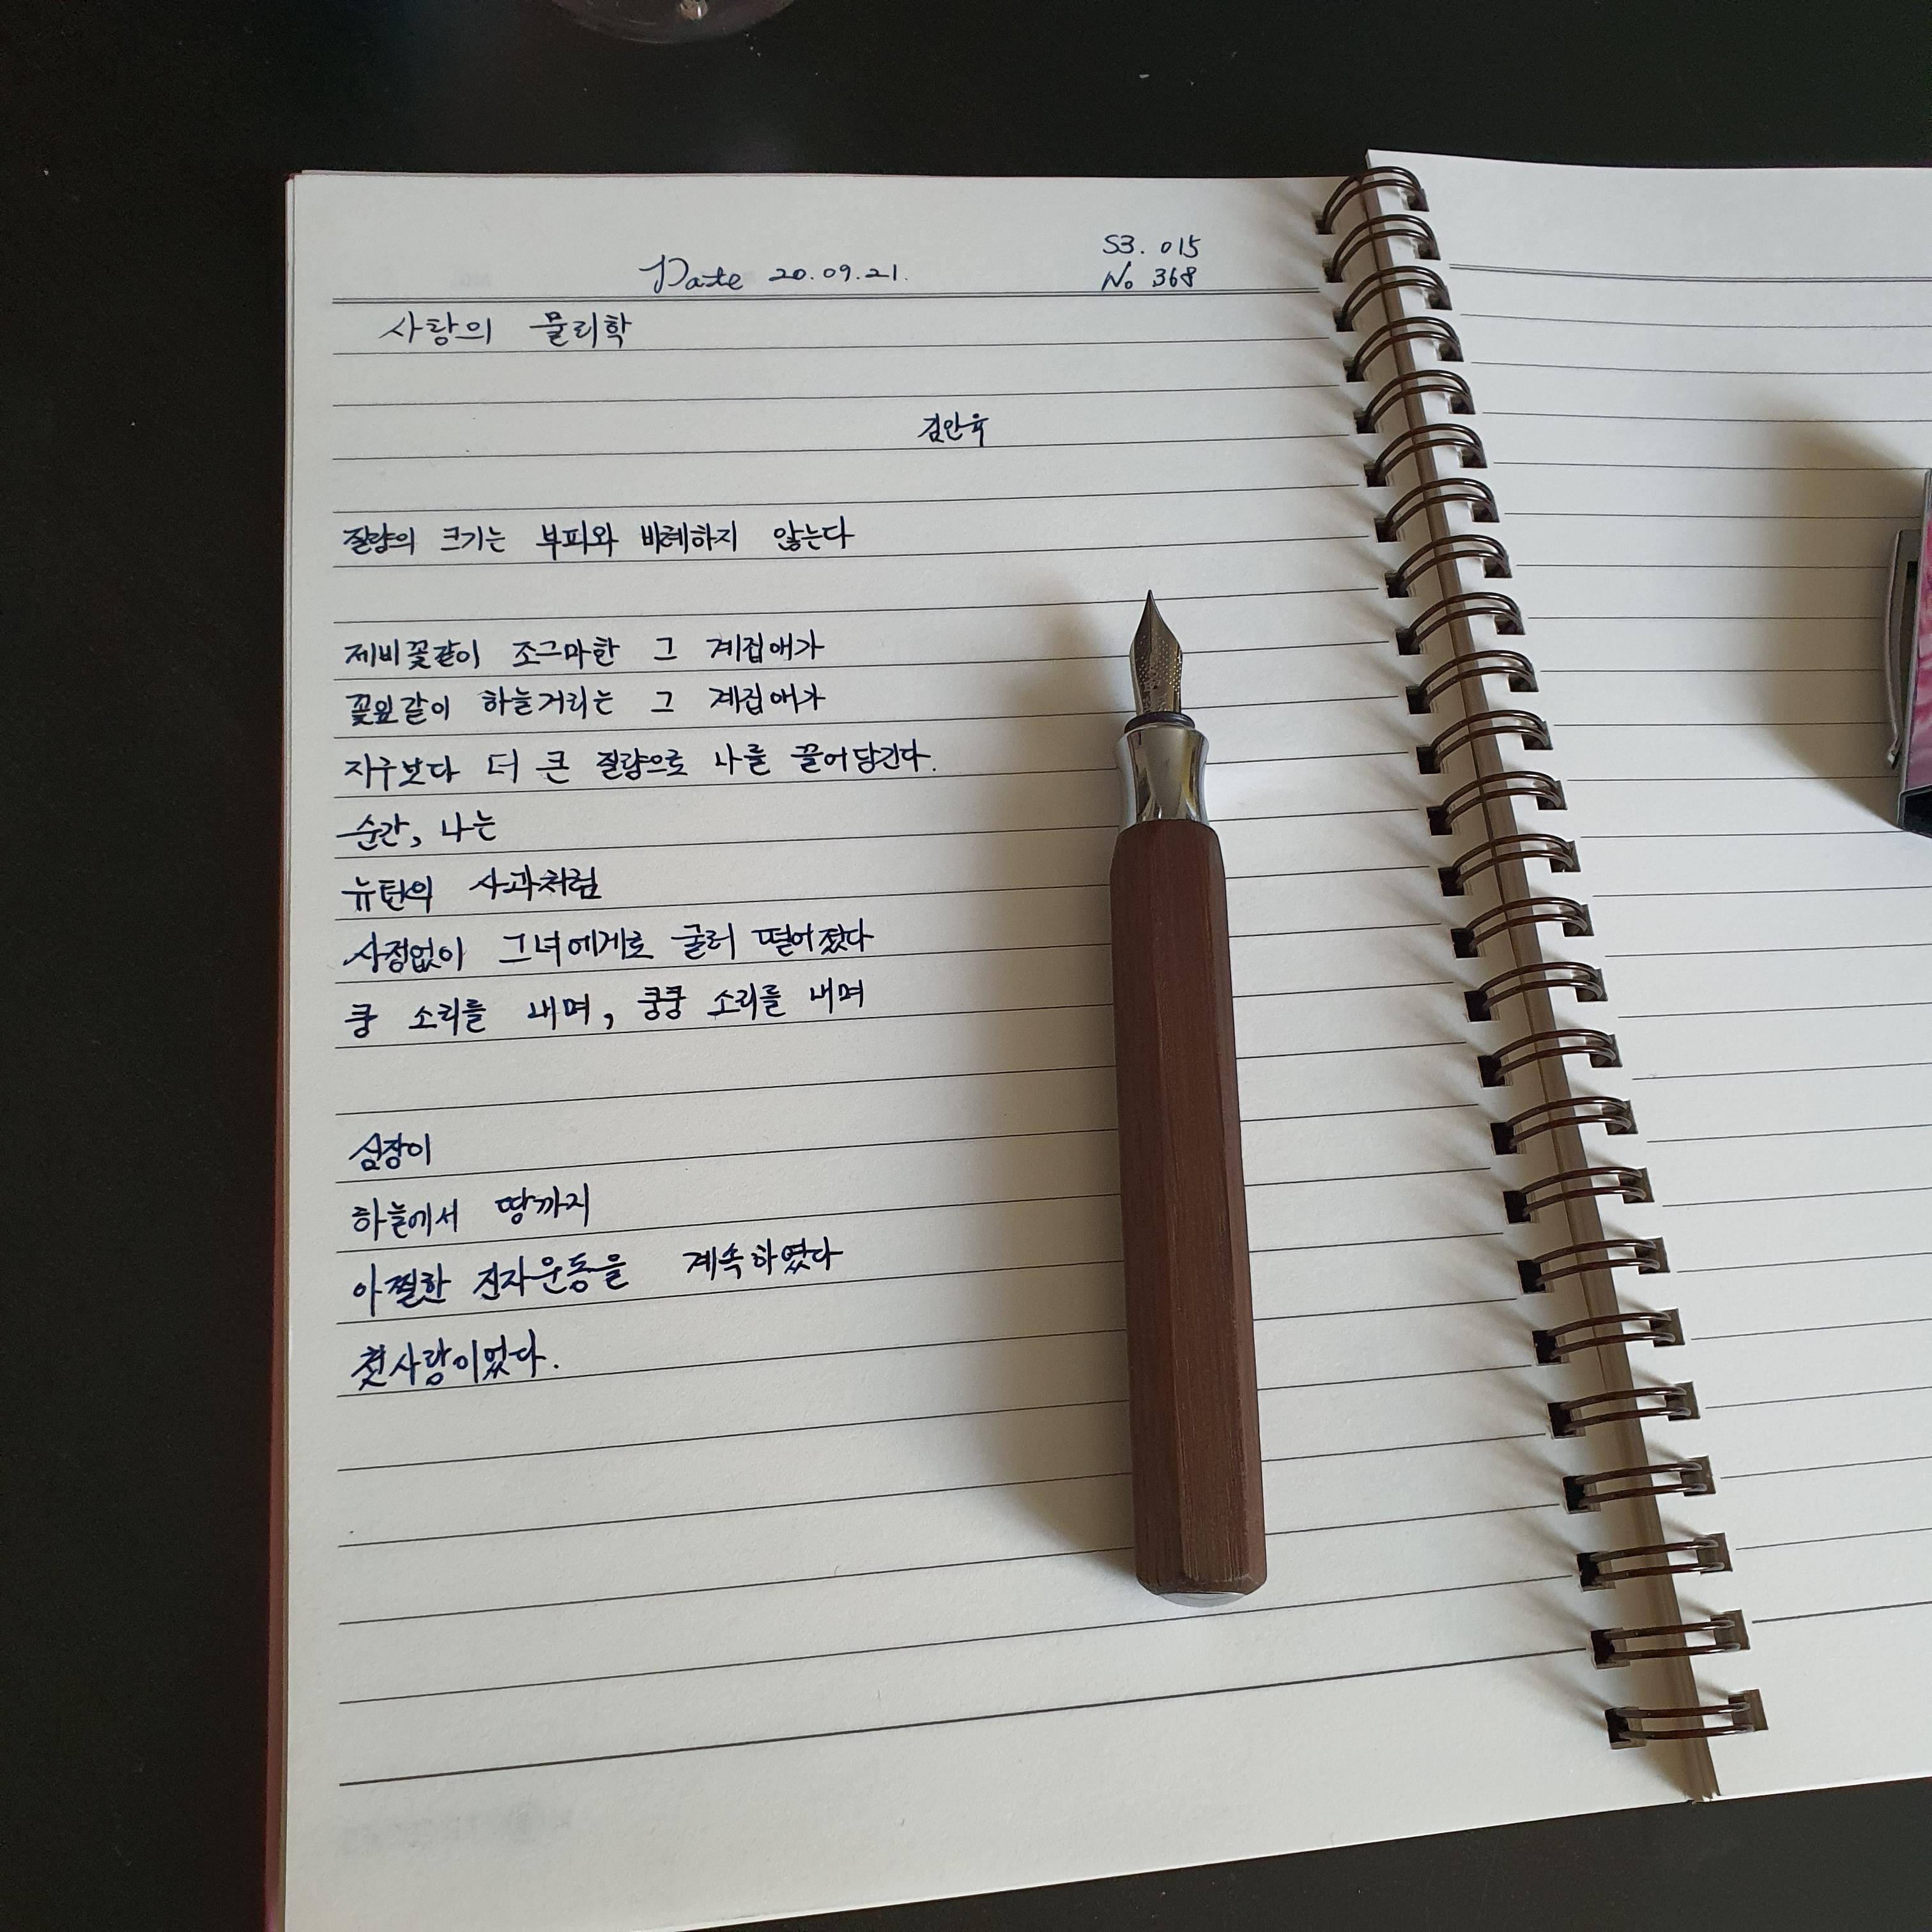 Date 20.09.21.
S3. 015
No 368
사랑의 물리학
김인육
질량의 크기는 부피와 비례하지 않는다
제비꽃같이 조그마한 그 계집애가
꽃잎같이 하늘거리는 그 계집애가
지구보다 더 큰 질량으로 나를 끌어당긴다.
순간, 나는
뉴턴의 사과처럼
사정없이 그녀에게로 굴러 떨어졌다
쿵 소리를 내며, 쿵쿵 소리를 내며
심장이
하늘에서 땅까지
아찔한 진자운동을 계속하였다
첫사랑이었다.